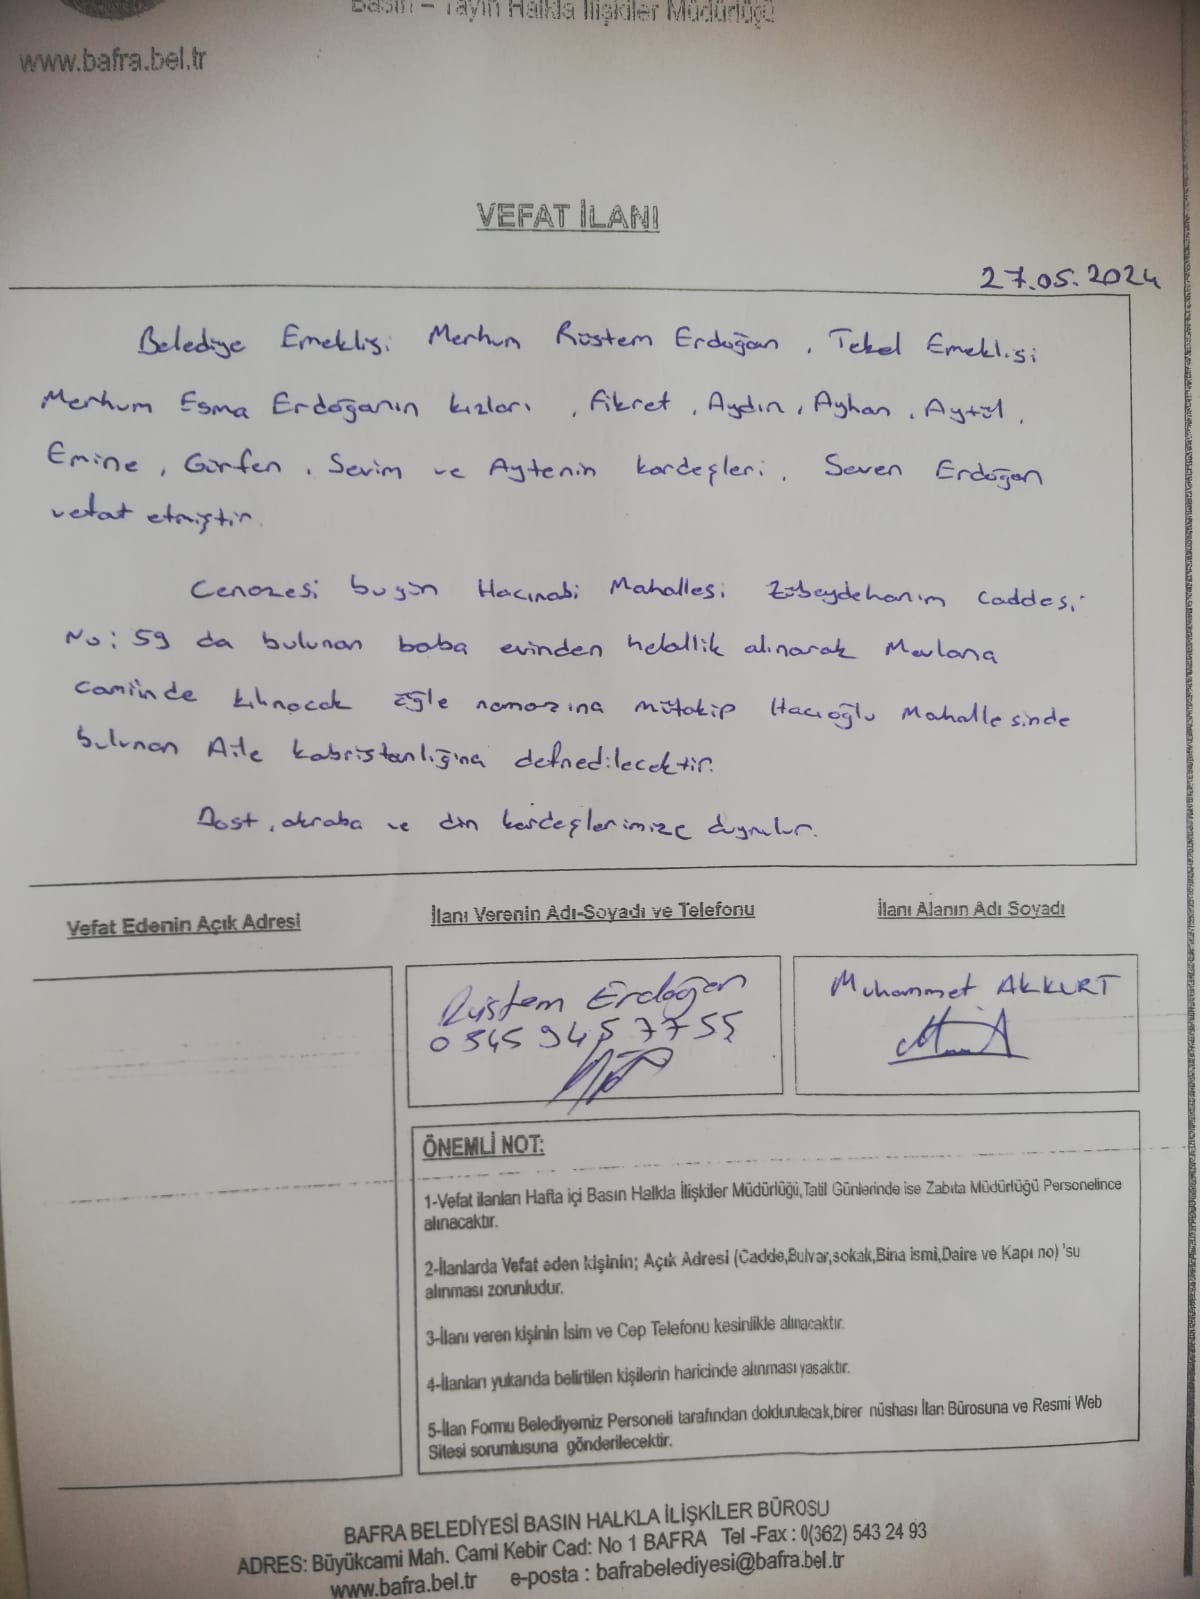 Basın – Yayın Halkla İlişkiler Müdürlüğü
www.bafra.bel.tr
VEFAT İLANI
27.05.2024
Belediye Emeklisi Merhum Rüstem Erdoğan, Tekel Emeklisi
Merhum Esma Erdoğanın kızları, Fikret, Aydın, Ayhan, Aytül,
Emine, Gürfen, Sevim ve Aytenin kardeşleri, Seven Erdoğan
vefat etmiştir.
Cenazesi bugün Hacınabi Mahallesi Zübeydehanım caddesi
No: 59 da bulunan baba evinden helallik alınarak Mevlana
camiinde kılınacak öğle namazına mütakip Hacıoğlu Mahallesinde
bulunan Aile kabristanlığına defnedilecektir.
Dost, akraba ve din kardeşlerimize duyrulur.
Vefat Edenin Açık Adresi
İlanı Verenin Adı-Soyadı ve Telefonu
İlanı Alanın Adı Soyadı
Rüstem Erdoğan
0545 945 7755
Muhammet AKKURT
ÖNEMLİ NOT:
1-Vefat ilanları Hafta içi Basın Halkla İlişkiler Müdürlüğü,Tatil Günlerinde ise Zabıta Müdürlüğü Personelince
alınacaktır.
2-İlanlarda Vefat eden kişinin; Açık Adresi (Cadde,Bulvar,sokak,Bina ismi,Daire ve Kapı no) 'su
alınması zorunludur.
3-İlanı veren kişinin İsim ve Cep Telefonu kesinlikle alınacaktır.
4-İlanları yukarıda belirtilen kişilerin haricinde alınması yasaktır.
5-İlan Formu Belediyemiz Personeli tarafından doldurulacak,birer nüshası İlan Bürosuna ve Resmi Web
Sitesi sorumlusuna gönderilecektir.
BAFRA BELEDİYESİ BASIN HALKLA İLİŞKİLER BÜROSU
ADRES: Büyükcami Mah. Cami Kebir Cad: No 1 BAFRA Tel -Fax : 0(362) 543 24 93
www.bafra.bel.tr e-posta : bafrabelediyesi@bafra.bel.tr